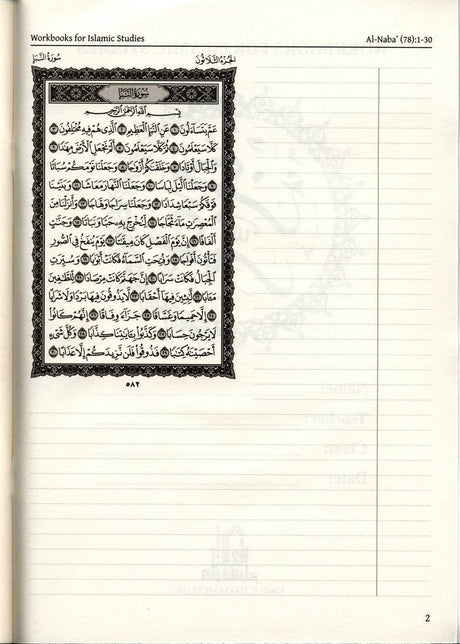 Workbooks for Islamic Studies
Al-Naba' (78):1-30
سورة النبإ
الجزء الثلاثون
سورة النبإ
بسم الله الرحمن الرحيم
عم يتساءلون ١ عن النبإ العظيم ٢ الذي هم فيه مختلفون ٣
كلا سيعلمون ٤ ثم كلا سيعلمون ٥ ألم نجعل الأرض مهدا ٦
والجبال أوتادا ٧ وخلقنكم أزوجا ٨ وجعلنا نومكم سباتا
٩ وجعلنا اليل لباسا ١٠ وجعلنا النهار معاشا ١١ وبنينا
فوقكم سبعا شدادا ١٢ وجعلنا سراجا وهاجا ١٣ وأنزلنا من
المعصرت ماء ثجاجا ١٤ لنخرج به حبا ونباتا ١٥ وجنت
ألفافا ١٦ إن يوم الفصل كان ميقتا ١٧ يوم ينفخ في الصور
فتأتون أفواجا ١٨ وفتحت السماء فكانت أبوبا ١٩ وسيرت
الجبال فكانت سرابا ٢٠ إن جهنم كانت مرصادا ٢١ للطغين
مئابا ٢٢ لبثين فيها أحقابا ٢٣ لا يذوقون فيها بردا ولا شرابا
٢٤ إلا حميما وغساقا ٢٥ جزاء وفاقا ٢٦ إنهم كانوا
لا يرجون حسابا ٢٧ وكذبوا بئايتنا كذابا ٢٨ وكل شيء
أحصينه كتبا ٢٩ فذوقوا فلن نزيدكم إلا عذابا ٣٠
٥٨٢
Name:
Teacher:
Class:
Date:
2